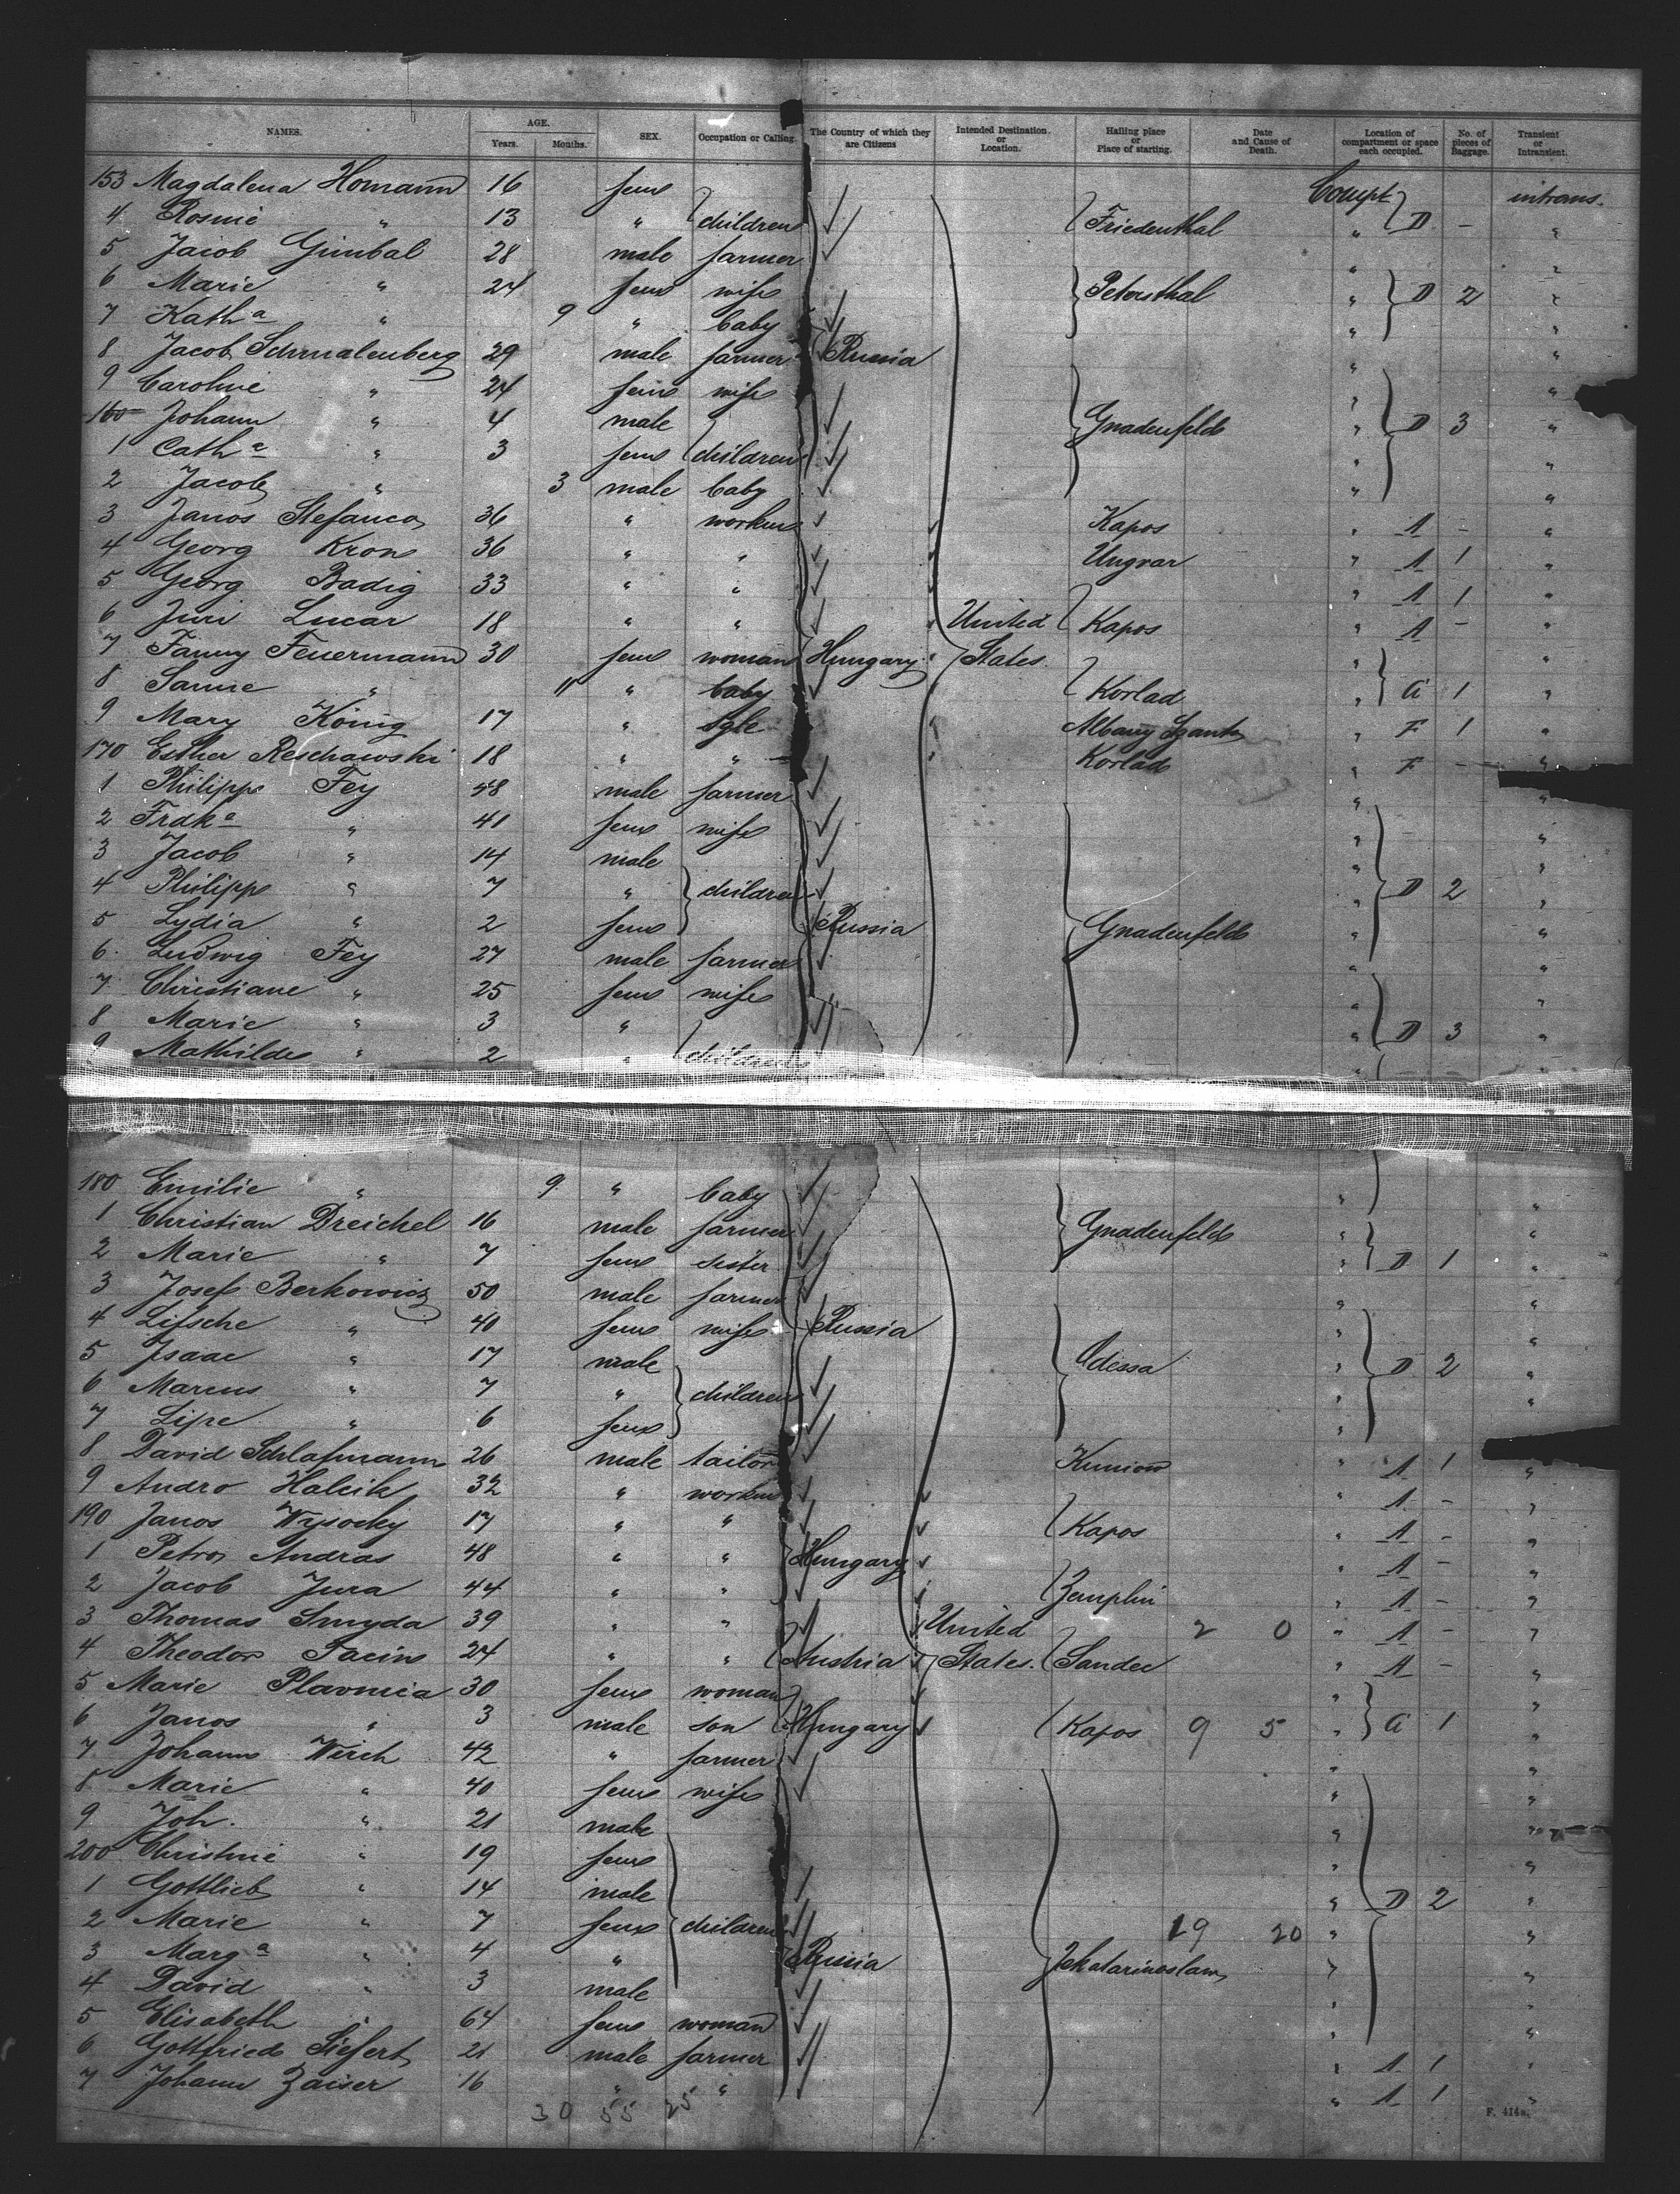 NAMES. AGE. Years. Months. SEX. Occupation or Calling. The Country of which they are Citizens Intended Destination or Location. Hailing place or Place of starting. Date and Cause of Death. Location of compartment or space each occupied. No. of pieces of Baggage. Transient or Intransient.
153 Magdalena Homann 16 fem Compt intrans.
4 Rosine " 13 " children Friedenthal " D - "
5 Jacob Gimbal 28 male farmer " "
6 Marie " 24 fem wife Petersthal " D 2 "
7 Kath a " 9 " baby " "
8 Jacob Schmalenberg 29 male farmer Russia " "
9 Caroline " 24 fem wife " "
160 Johann " 4 male Gnadenfeld " D 3 "
1 Cath a " 3 fem children " "
2 Jacob " 3 male baby " "
3 Janos Stefanco 36 " worker Kapos " A - "
4 Georg Kron 36 " " Ungvar " A 1 "
5 Georg Badig 33 " " " A 1 "
6 Juri Lucar 18 " " United Kapos " A - "
7 Fanny Feuermann 30 fem woman Hungary States " "
8 Sanne " 11 " baby Korlad " a 1 "
9 Mary König 17 " sgle Albany Szanto " F 1 "
170 Esther Reschawski 18 " " Korlad " F - "
1 Philipp Fey 48 male farmer " "
2 Frdk a " 41 fem wife " "
3 Jacob " 14 male " "
4 Philipp " 7 " children " D 2 "
5 Lydia " 2 fem Russia Gnadenfeld " "
6 Ludwig Fey 27 male farmer " "
7 Christiane " 25 fem wife " "
8 Marie " 3 " " D 3 "
9 Mathilde " 2 " children " "
180 Emilie " 9 " baby " "
1 Christian Dreichel 16 male farmer Gnadenfeld " "
2 Marie " 7 fem sister " D 1 "
3 Josef Berkowicz 50 male farmer " "
4 Lifsche " 40 fem wife Russia " "
5 Isaac " 17 male Odessa " D 2 "
6 Marcus " 7 " children " "
7 Lipe " 6 fem " "
8 David Schlafmann 26 male tailor Kuniow " A 1 "
9 Andro Halcik 32 " worker " A - "
190 Janos Wysocky 17 " " Kapos " A - "
1 Petro Andras 48 " " Hungary " A - "
2 Jacob Jura 44 " " Zemplin " A - "
3 Thomas Smyda 39 " " United 2 0 " A - "
4 Theodor Pacin 24 " " Austria States. Sandec " A - "
5 Marie Plavnica 30 fem woman " "
6 Janos " 3 male son Hungary Kapos 9 5 " a 1 "
7 Johann Weich 42 " farmer " "
8 Marie " 40 fem wife " "
9 Joh. " 21 male " "
200 Christine " 19 fem " "
1 Gottlieb " 14 male " D 2 "
2 Marie " 7 fem children 19 20 " "
3 Marg a " 4 " Russia Jekatarinoslaw " "
4 David " 3 male " "
5 Elisabeth " 64 fem woman " "
6 Gottfried Siefert 21 male farmer " A 1 "
7 Johann Zaiser 16 " " " A 1 "
30 55 25
F. 414a.